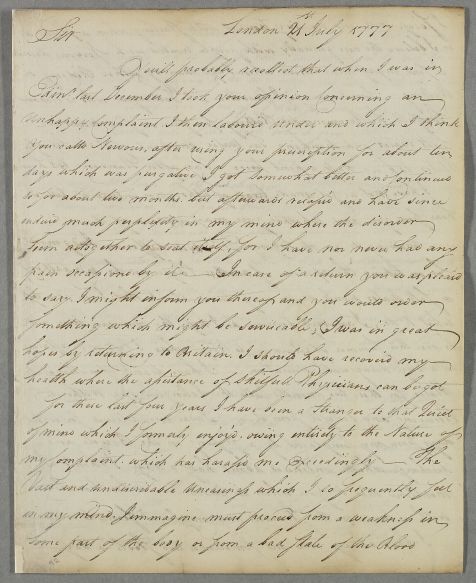 London 21st July 1777
Sir
You'll probably recollect that when I was in
Edinr last December I took your opinion Concerning an
unhappy Complaint I then laboured under and which I think
you calld Nervous, after using your prescription for about ten
days which was purgative I got Somewhat better and continued
so for about two months but afterwards relapsd and have Since
endured much perplexity in my mind where the disorder
Seem altogether to Seat itself, for I have nor never had any
pain occasiond by it — In case of a return you was pleasd
to say I might inform you thereof and you would order
Something which might be Serviceable, I was in great
hopes by returning to Britain. I should have recoverd my
health where the assistance of Skilfull Physicians can be got
for these last four years I have been a Stranger to that Quiet
of mind which I formerly enjoy'd. owing entirely to the Nature of
my complaint. which has harassd me Exceedingly — The
Vast and undescribable Uneasiness which I so frequently feel
in my mind. I immagine must proceed from a weakness in
Some part of the body or from a bad State of the Blood